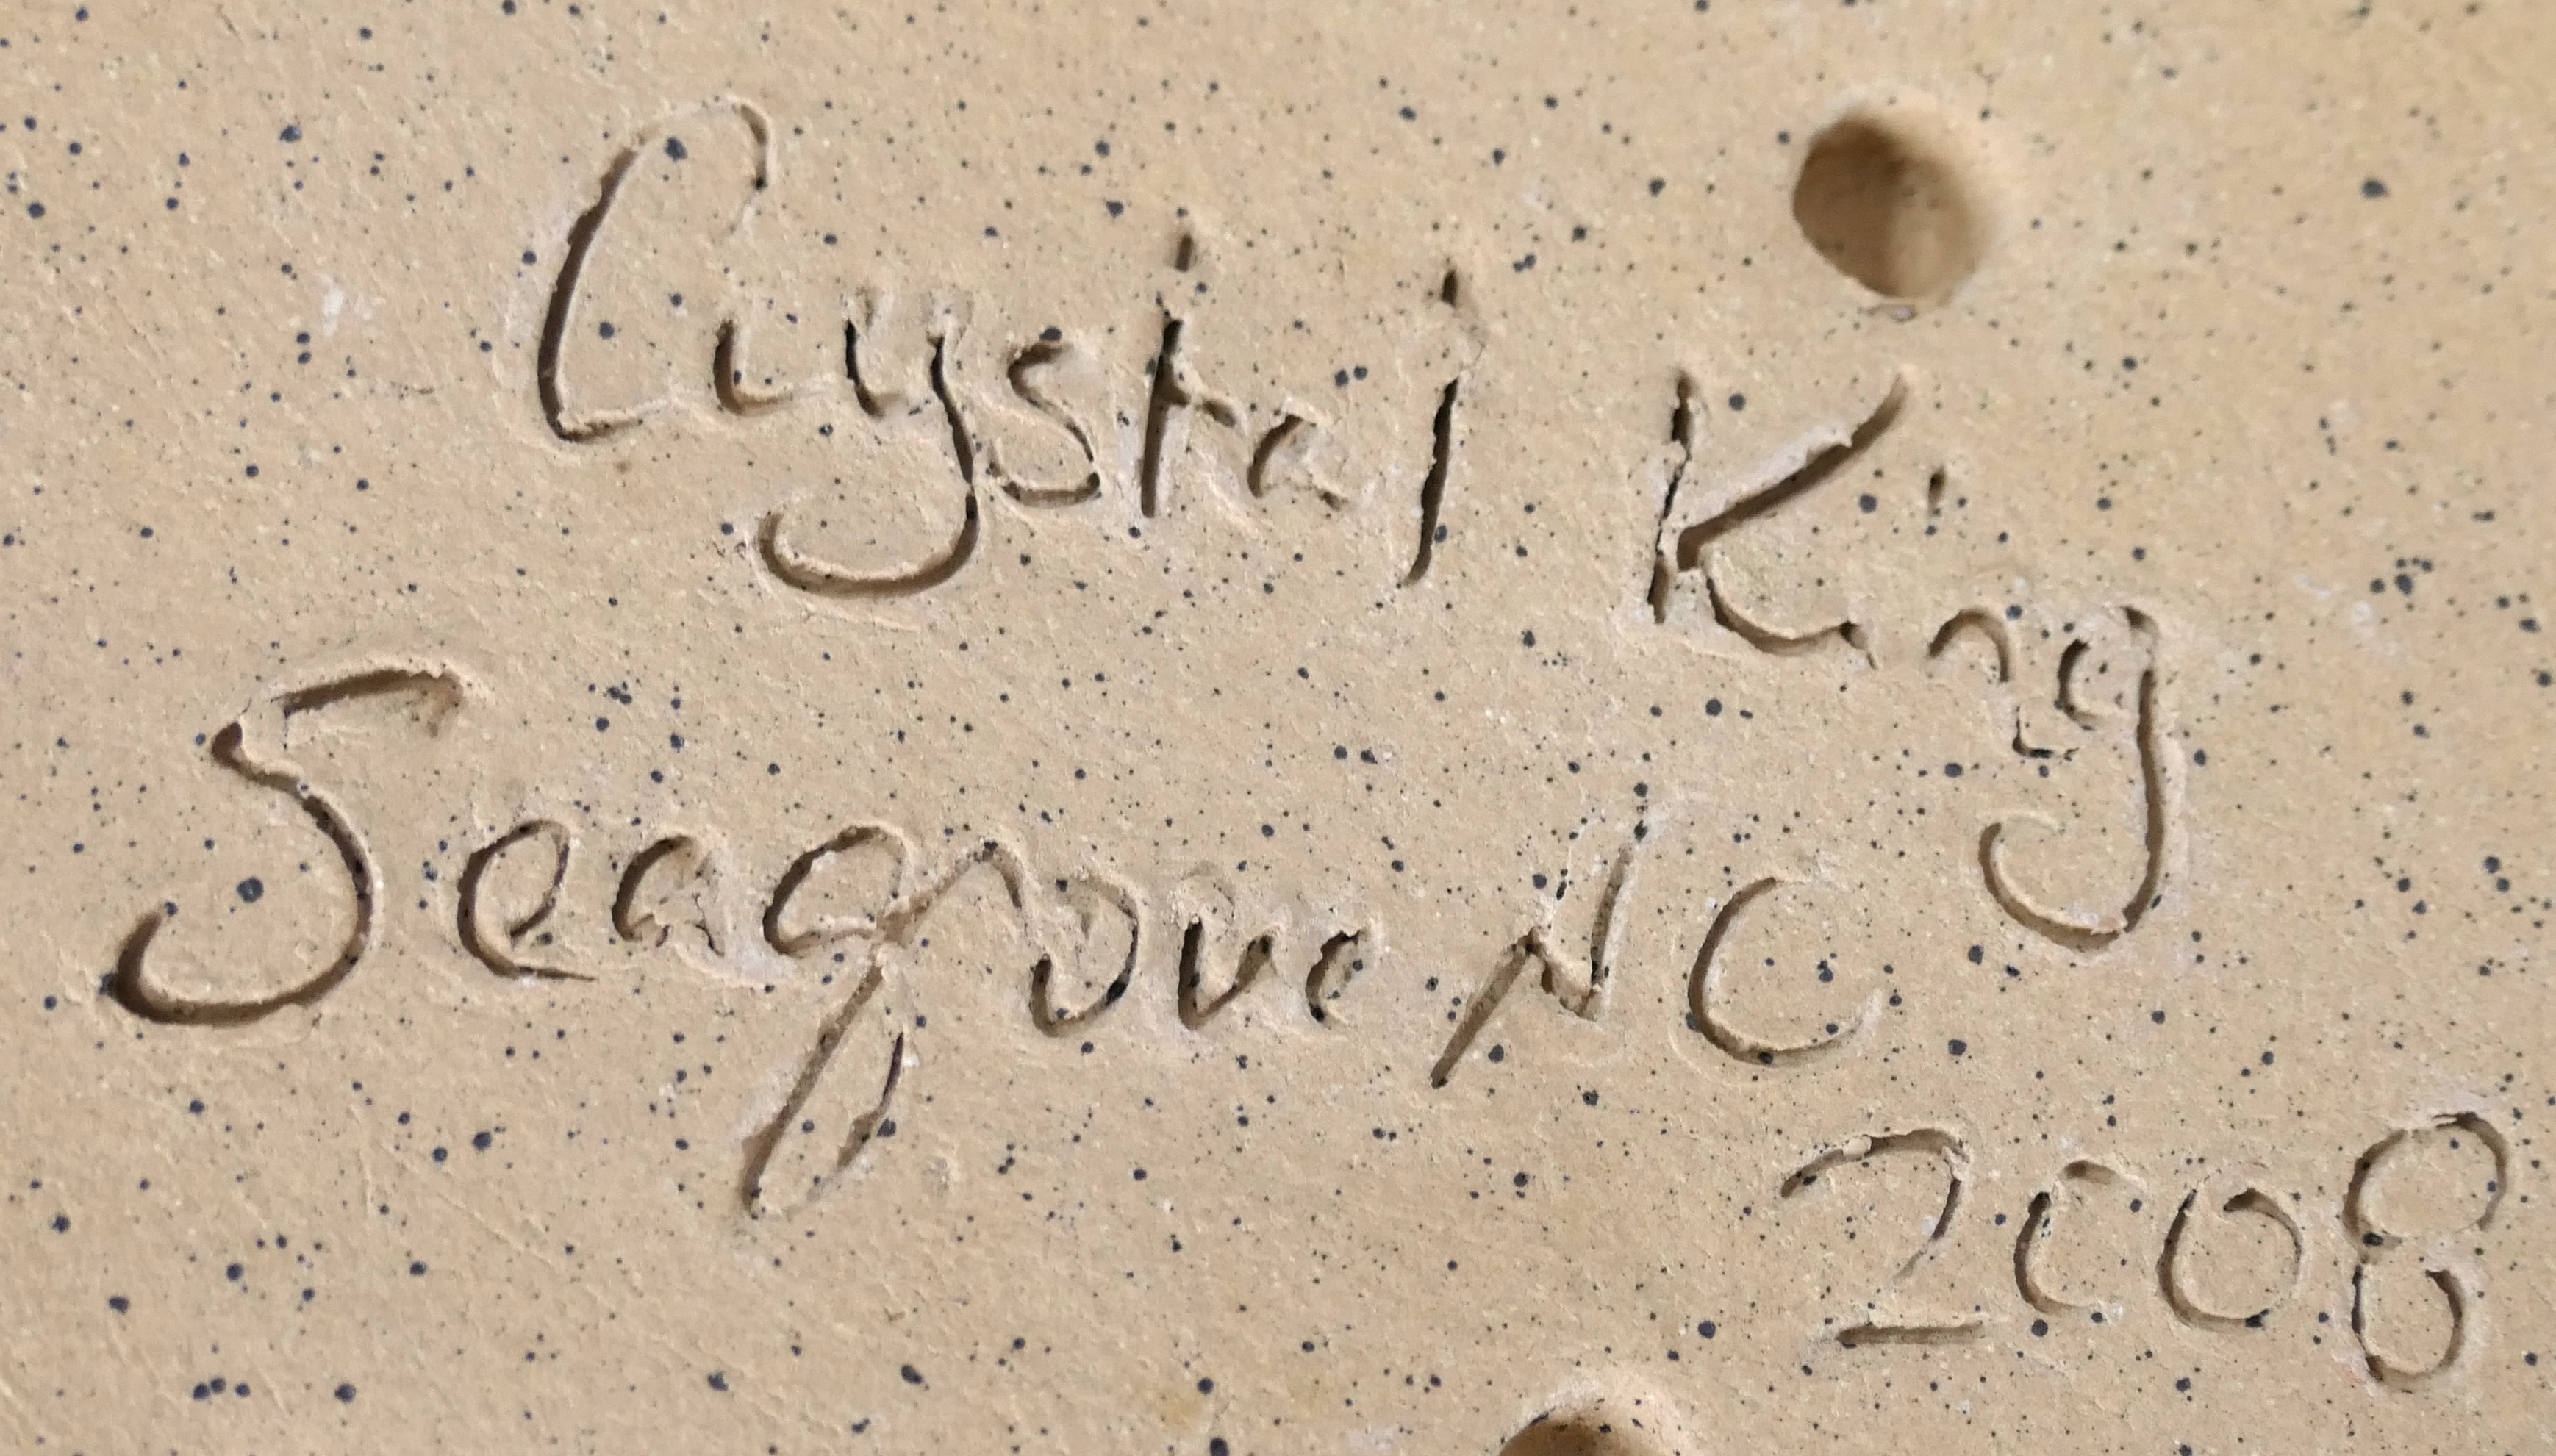 Crystal King
Seagrove NC
2008